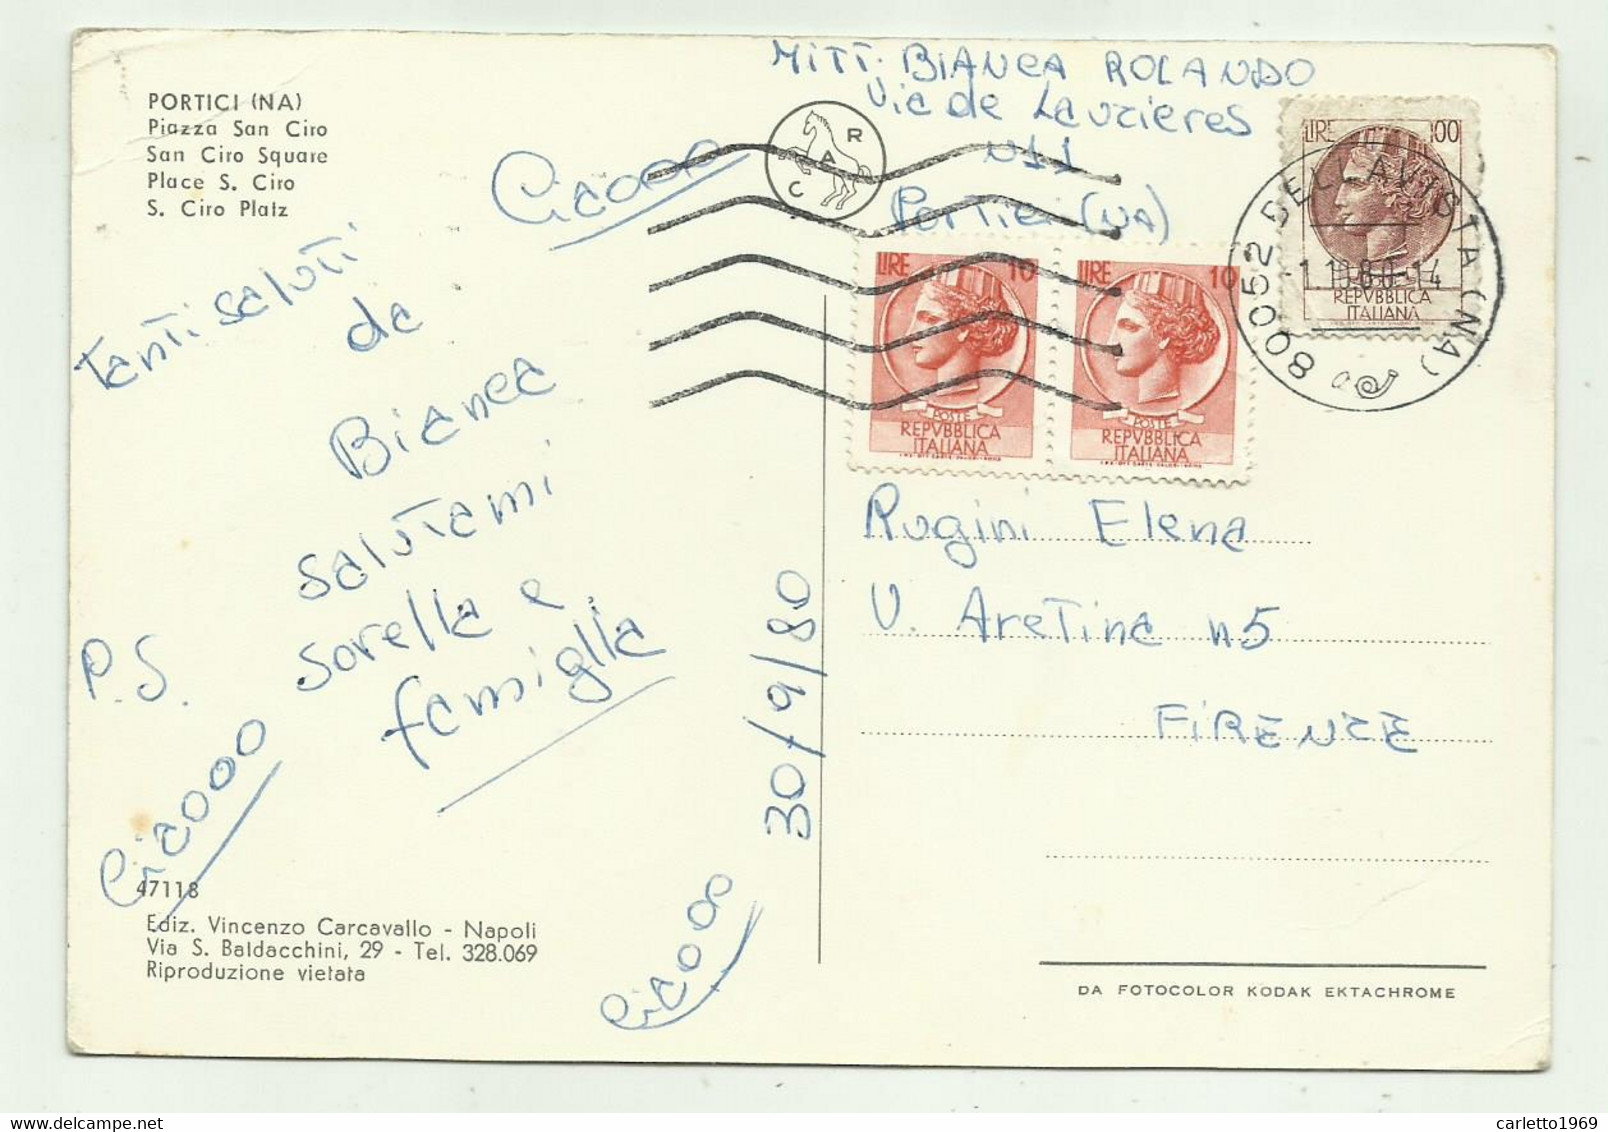 PORTICI (NA)
Piazza San Ciro
San Ciro Square
Place S. Ciro
S. Ciro Platz
MITT. BIANCA ROLANDO
Via de Lauzieres
N11
Portici (NA)
Ciaooo
R
A
C
LIRE 100
REPVBBLICA
ITALIANA
80052 BELLAVISTA (NA)
1.10.80-14
LIRE 10
POSTE
REPVBBLICA
ITALIANA
LIRE 10
POSTE
REPVBBLICA
ITALIANA
Tanti saluti
da
Bianca
P.S. salutami
sorella e
famiglia
Ciaooo
Ciaooo
30/9/80
Rugini Elena
V. Aretina n5
FIRENZE
47118
Ediz. Vincenzo Carcavallo - Napoli
Via S. Baldacchini, 29 - Tel. 328.069
Riproduzione vietata
DA FOTOCOLOR KODAK EKTACHROME
carletto1969